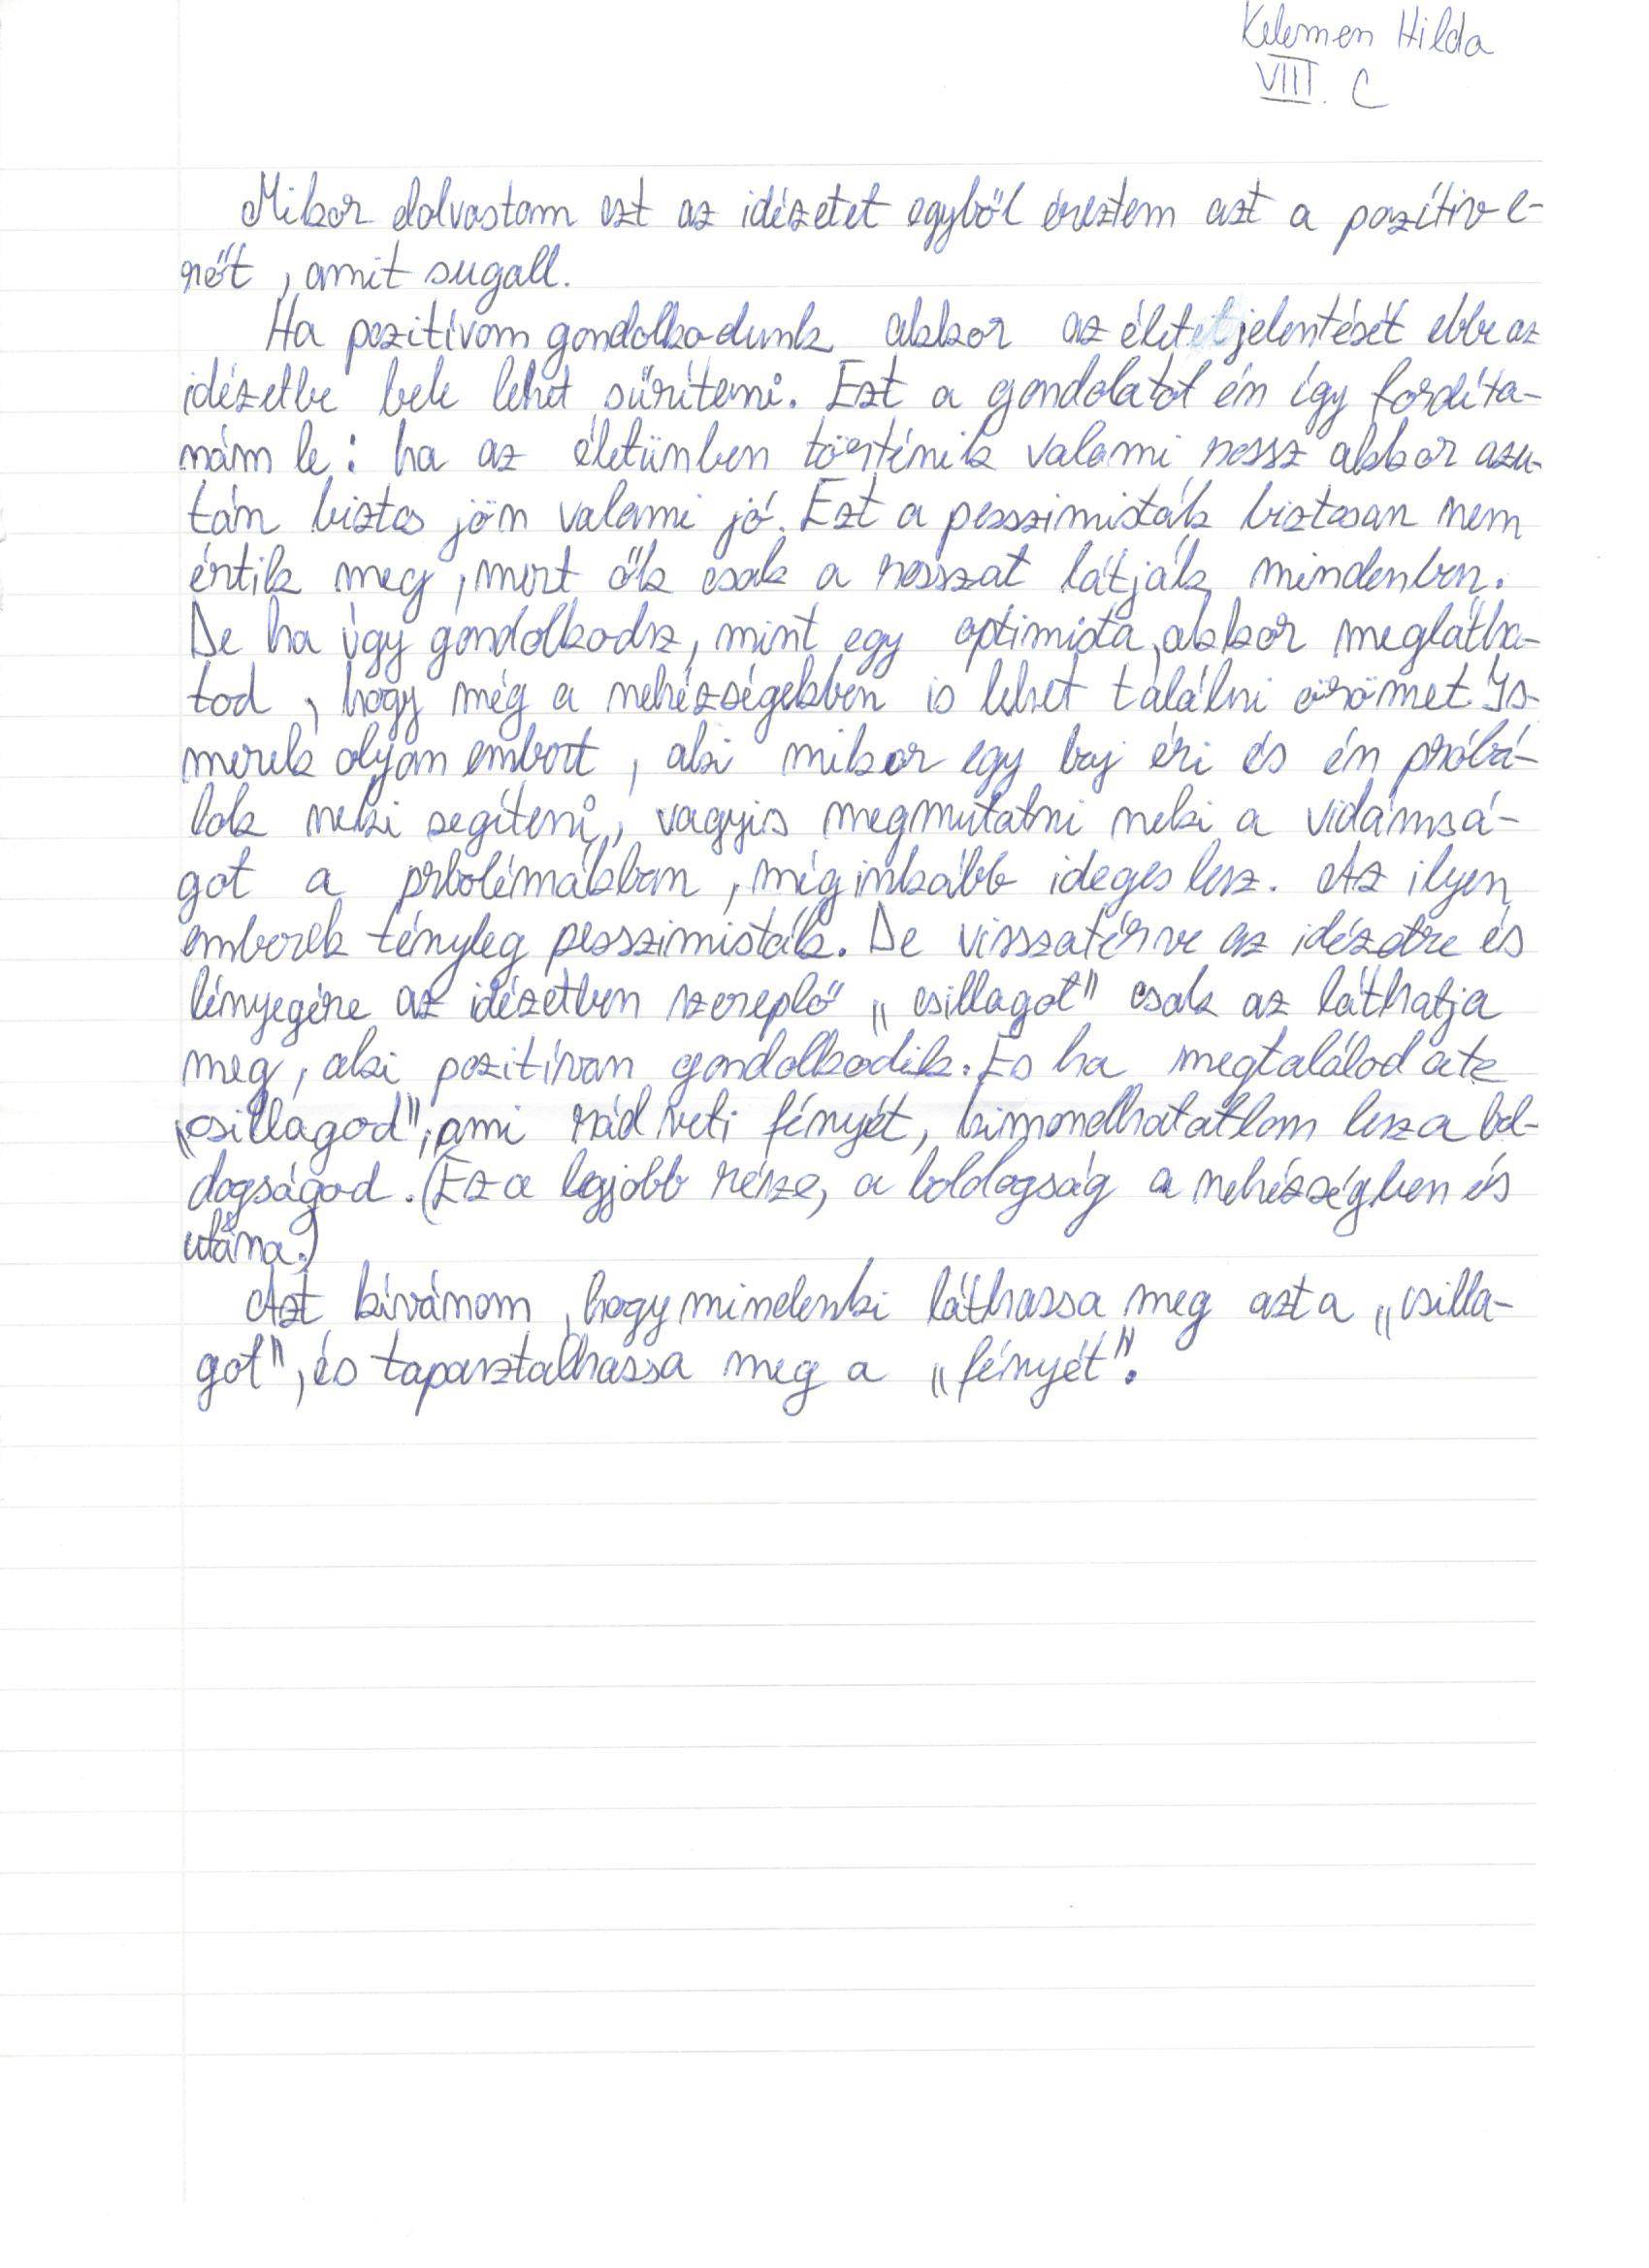 Kelemen Hilda
VIII. C
Mikor elolvastam ezt az idézetet egyből éreztem azt a pozítiv e-
rőt, amit sugall.
Ha pozitívam gondolkodunk akkor az életet jelentését ebbe az
idézetbe bele lehet sűríteni. Ezt a gondolatot én így fordíta-
nám le: ha az életünben történik valami rossz akkor azu-
tán biztos jön valami jó. Ezt a pesszimisták biztosan nem
értik meg, mert ők csak a rosszat látják mindenben.
De ha úgy gondolkodsz, mint egy optimista, akkor meglátha-
tod, hogy még a nehézségekben is lehet találni örömet. Is-
merek olyan embert, aki mikor egy baj éri és én próbá-
lok neki segíteni, vagyis megmutatni neki a vidámsá-
got a prbolémákban, méginkább ideges lesz. Az ilyen
emberek tényleg pesszimisták. De visszatérve az idézetre és
lényegére az idézetben szereplő „csillagot" csak az láthatja
meg, aki pozitívan gondolkodik. És ha megtalálod a te
„csillagod", ami rád veti fényét, kimondhatatlam lesz a bol-
dogságod. (Ez a legjobb része, a boldogság a nehézségben és
utána.)
Azt kívánom, hogy mindenki láthassa meg azt a „csilla-
got", és tapasztalhassa meg a „fényét".